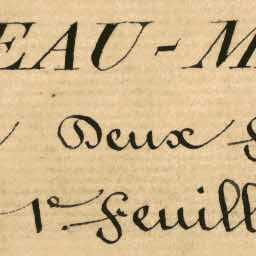 EAU-M
Deux f
1e. Feuill